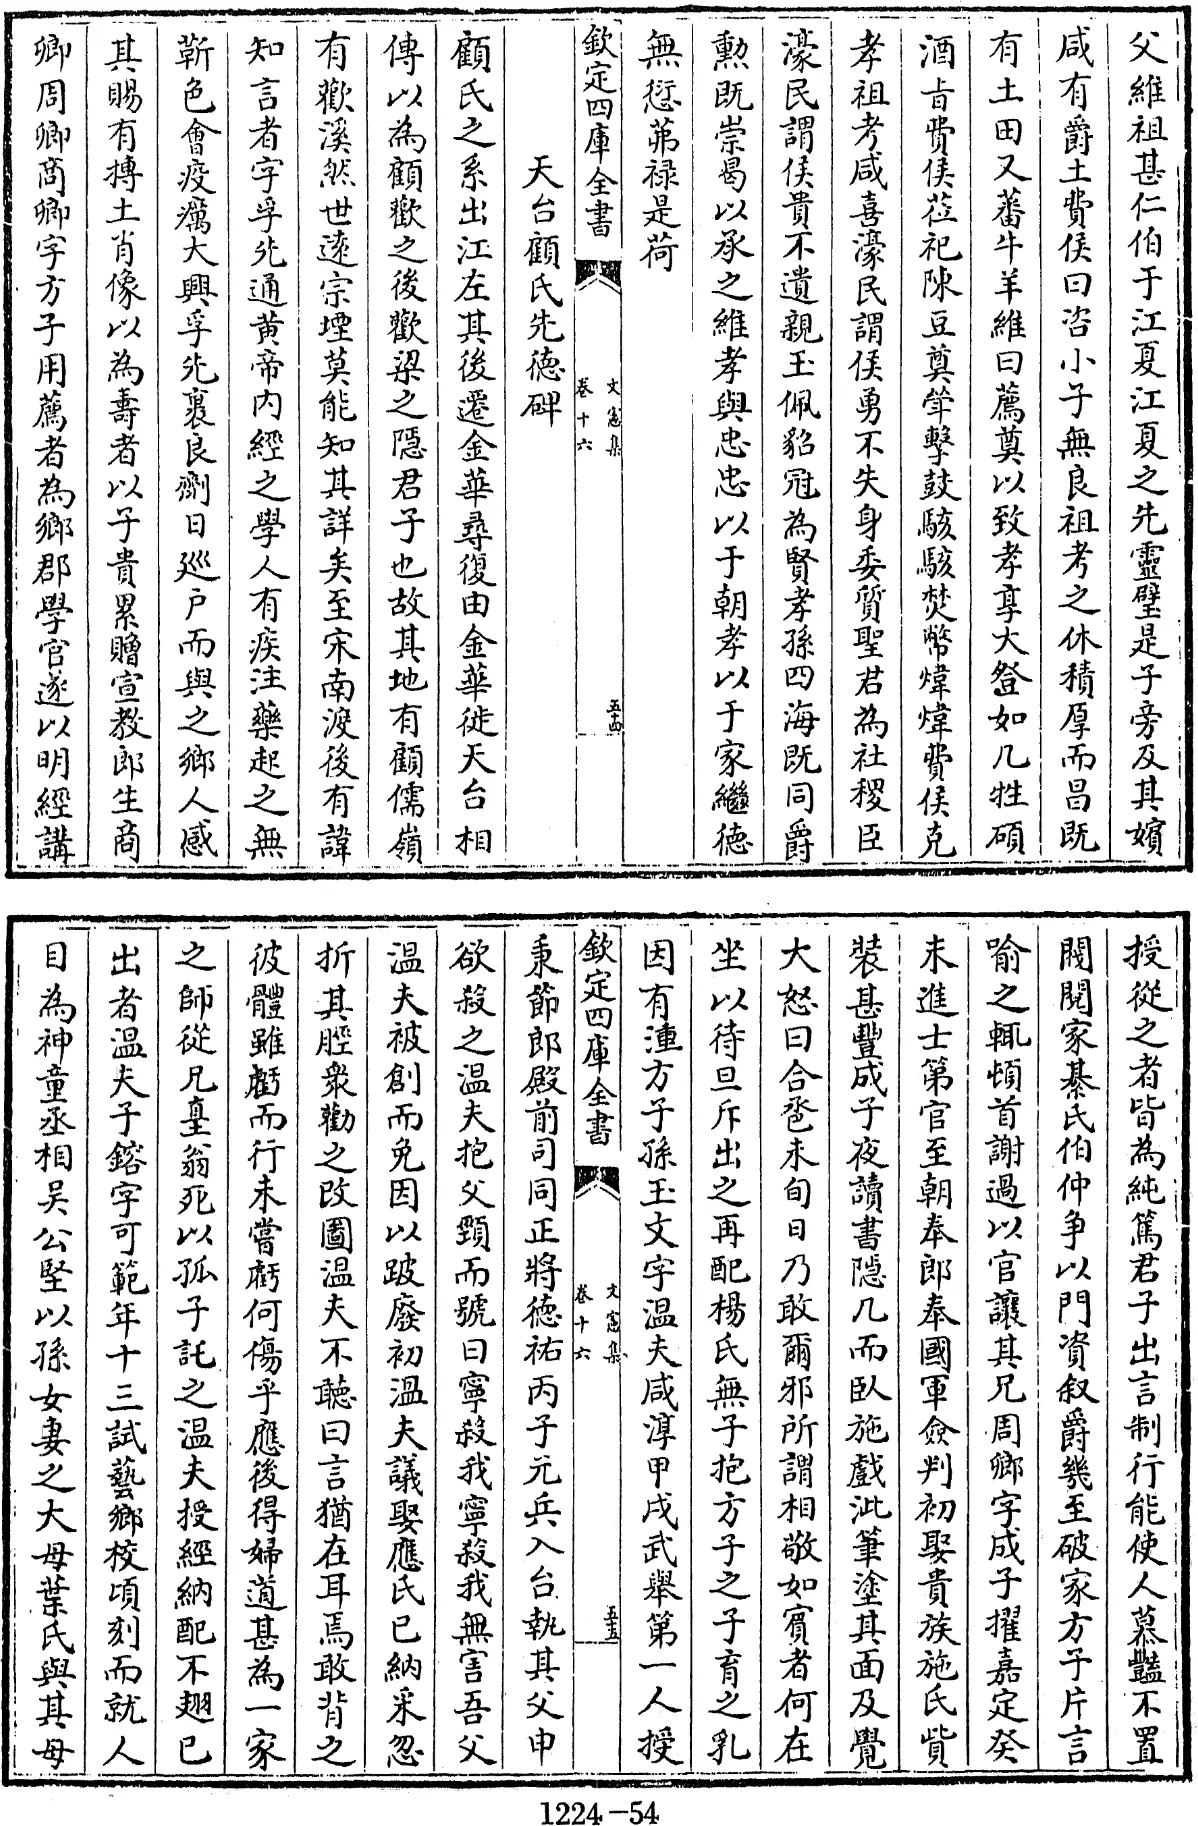 父維祖甚仁伯于江夏江夏之先靈璧是子旁及其嬪
咸有爵土費侯曰咨小子無良祖考之休積厚而昌既
有土田又蕃牛羊維曰薦奠以致孝享大登如几牲碩
酒旨費侯莅祀陳豆奠斝擊鼓駭駭焚幣煒煒費侯克
孝祖考咸喜濠民謂侯勇不失身委質聖君為社稷臣
濠民謂侯貴不遺親玉佩貂冠為賢孝孫四海既同爵
勲既崇曷以承之維孝與忠忠以于朝孝以于家繼德
無愆茀禄是荷
欽定四庫全書
文憲集
卷十六
五十四
天台顧氏先德碑
顧氏之系出江左其後遷金華尋復由金華徙天台相
傳以為顧歡之後歡梁之隱君子也故其地有顧儒嶺
有歡溪然世逺宗堙莫能知其詳矣至宋南渡後有諱
知言者字孚先通黄帝内經之學人有疾注藥起之無
靳色會疫癘大興孚先裹良劑日廵户而與之鄉人感
其賜有摶土肖像以為壽者以子貴累贈宣教郎生商
卿周卿商卿字方子用薦者為鄉郡學官遂以明經講
授從之者皆為純篤君子出言制行能使人慕豔不置
閥閱家綦氏伯仲争以門資叙爵幾至破家方子片言
喻之輒頓首謝過以官讓其兄周卿字成子擢嘉定癸
未進士第官至朝奉郎奉國軍僉判初娶貴族施氏貲
装甚豐成子夜讀書隠几而臥施戲泚筆塗其面及覺
大怒曰合卺未旬日乃敢爾邪所謂相敬如賓者何在
坐以待旦斥出之再配楊氏無子抱方子之子育之乳
因有湩方子孫玉文字温夫咸淳甲戌武舉第一人授
欽定四庫全書
文憲集
卷十六
五十五
秉節郎殿前司同正將德祐丙子元兵入台執其父申
欲殺之温夫抱父頸而號曰寧殺我寧殺我無害吾父
温夫被創而免因以跛廢初温夫議娶應氏已納采忽
折其脛衆勸之改圖温夫不聴曰言猶在耳焉敢背之
彼體雖虧而行未嘗虧何傷乎應後得婦道甚為一家
之師從兄㙜翁死以孤子託之温夫授經納配不翅已
出者温夫子鎔字可範年十三試藝鄉校頃刻而就人
目為神童丞相吴公堅以孫女妻之大母葉氏與其母
1224-54